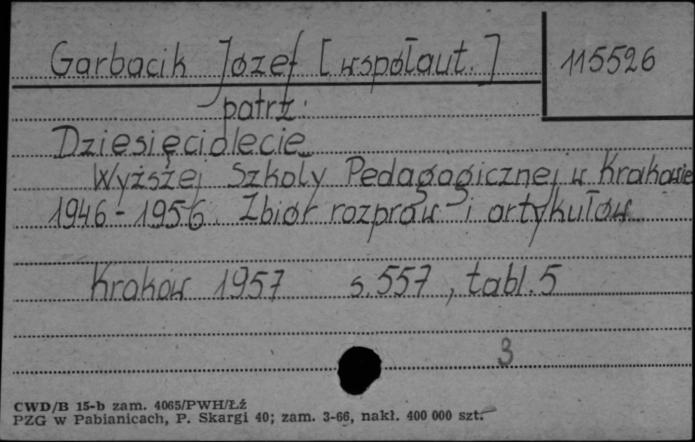 Garbacik Józef [współaut.] 115526
patrz:
Dziesięciolecie
Wyższej Szkoły Pedagogicznej w Krakowie
1946-1956. Zbiór rozpraw i artykułów
Kraków 1957 s.557, tabl.5
3
CWD/B 15-b zam. 4065/PWH/Łź
PZG w Pabianicach, P. Skargi 40; zam. 3-66, nakł. 400 000 szt.